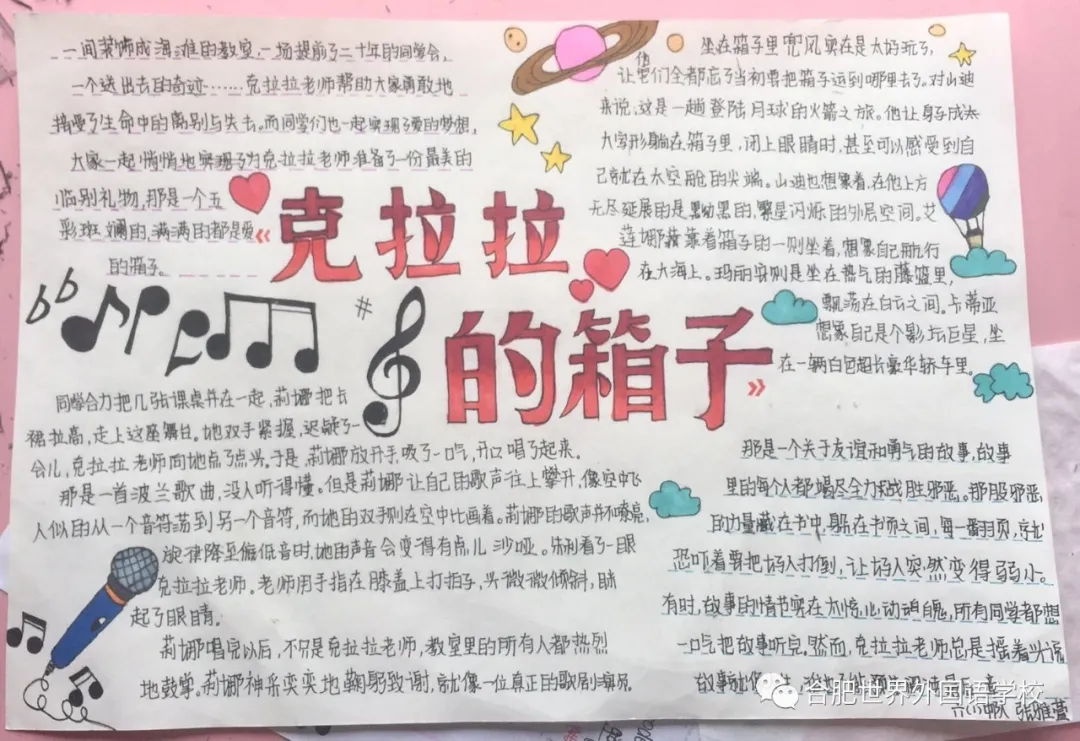 一间装饰成海滩的教室,一场提前了二十年的同学会,
一个送出去的奇迹……克拉拉老师帮助大家勇敢地
接受了生命中的离别与失去。而同学们也一起实现了爱的梦想,
大家一起悄悄地实现了为克拉拉老师准备了一份最美的
临别礼物,那是一个五
彩斑斓的,满满的都是爱
的箱子。
《克拉拉
的箱子》
坐在箱子里兜风实在是太好玩了,
让他们全都忘了当初要把箱子运到哪里去了。对山迪
来说,这是一趟登陆月球的火箭之旅。他让身子成
大字形躺在箱子里,闭上眼睛时,甚至可以感受到自
己就在太空船的尖端。山迪也想象着,在他上方
无尽延展的是黝黑的,繁星闪烁的外层空间。艾
莲娜靠着箱子的一侧坐着,想象自己航行
在大海上。玛丽安则是坐在热气的藤篮里,
飘荡在白云之间。卡蒂亚
想象自己是个影坛巨星,坐
在一辆白色超长豪华轿车里。
同学合力把几张课桌并在一起,莉娜把长
裙拉高,走上这座舞台。她双手紧握,迟疑了一
会儿,克拉拉老师向她点了点头。于是,莉娜放开手,吸了一口气,开口唱了起来。
那是一首波兰歌曲,没人听得懂。但是莉娜让自己的歌声往上攀升,像空中飞
人似的从一个音符荡到另一个音符,而她的双手则在空中比画着。莉娜的歌声并不嘹亮,
旋律降至偏低音时,她的声音会变得有点儿沙哑。朱利看了一眼
克拉拉老师。老师用手指在膝盖上打拍子,头微微倾斜,眯
起了眼睛。
莉娜唱完以后,不只是克拉拉老师,教室里的所有人都热烈
地鼓掌。莉娜神采奕奕地鞠躬致谢,就像一位真正的歌剧演员。
那是一个关于友谊和勇气的故事,故事
里的每个人都竭尽全力求战胜邪恶。那股邪恶
的力量藏在书中,躲在书页之间,每一翻页,就
恐吓着要把好人打倒,让好人突然变得弱小。
有时,故事的情节实在太惊心动魄,所有同学都想
一口气把故事听完。然而,克拉拉老师总是摇着头说
故事
合肥世界外国语学校
六(1)中队 张雅萱